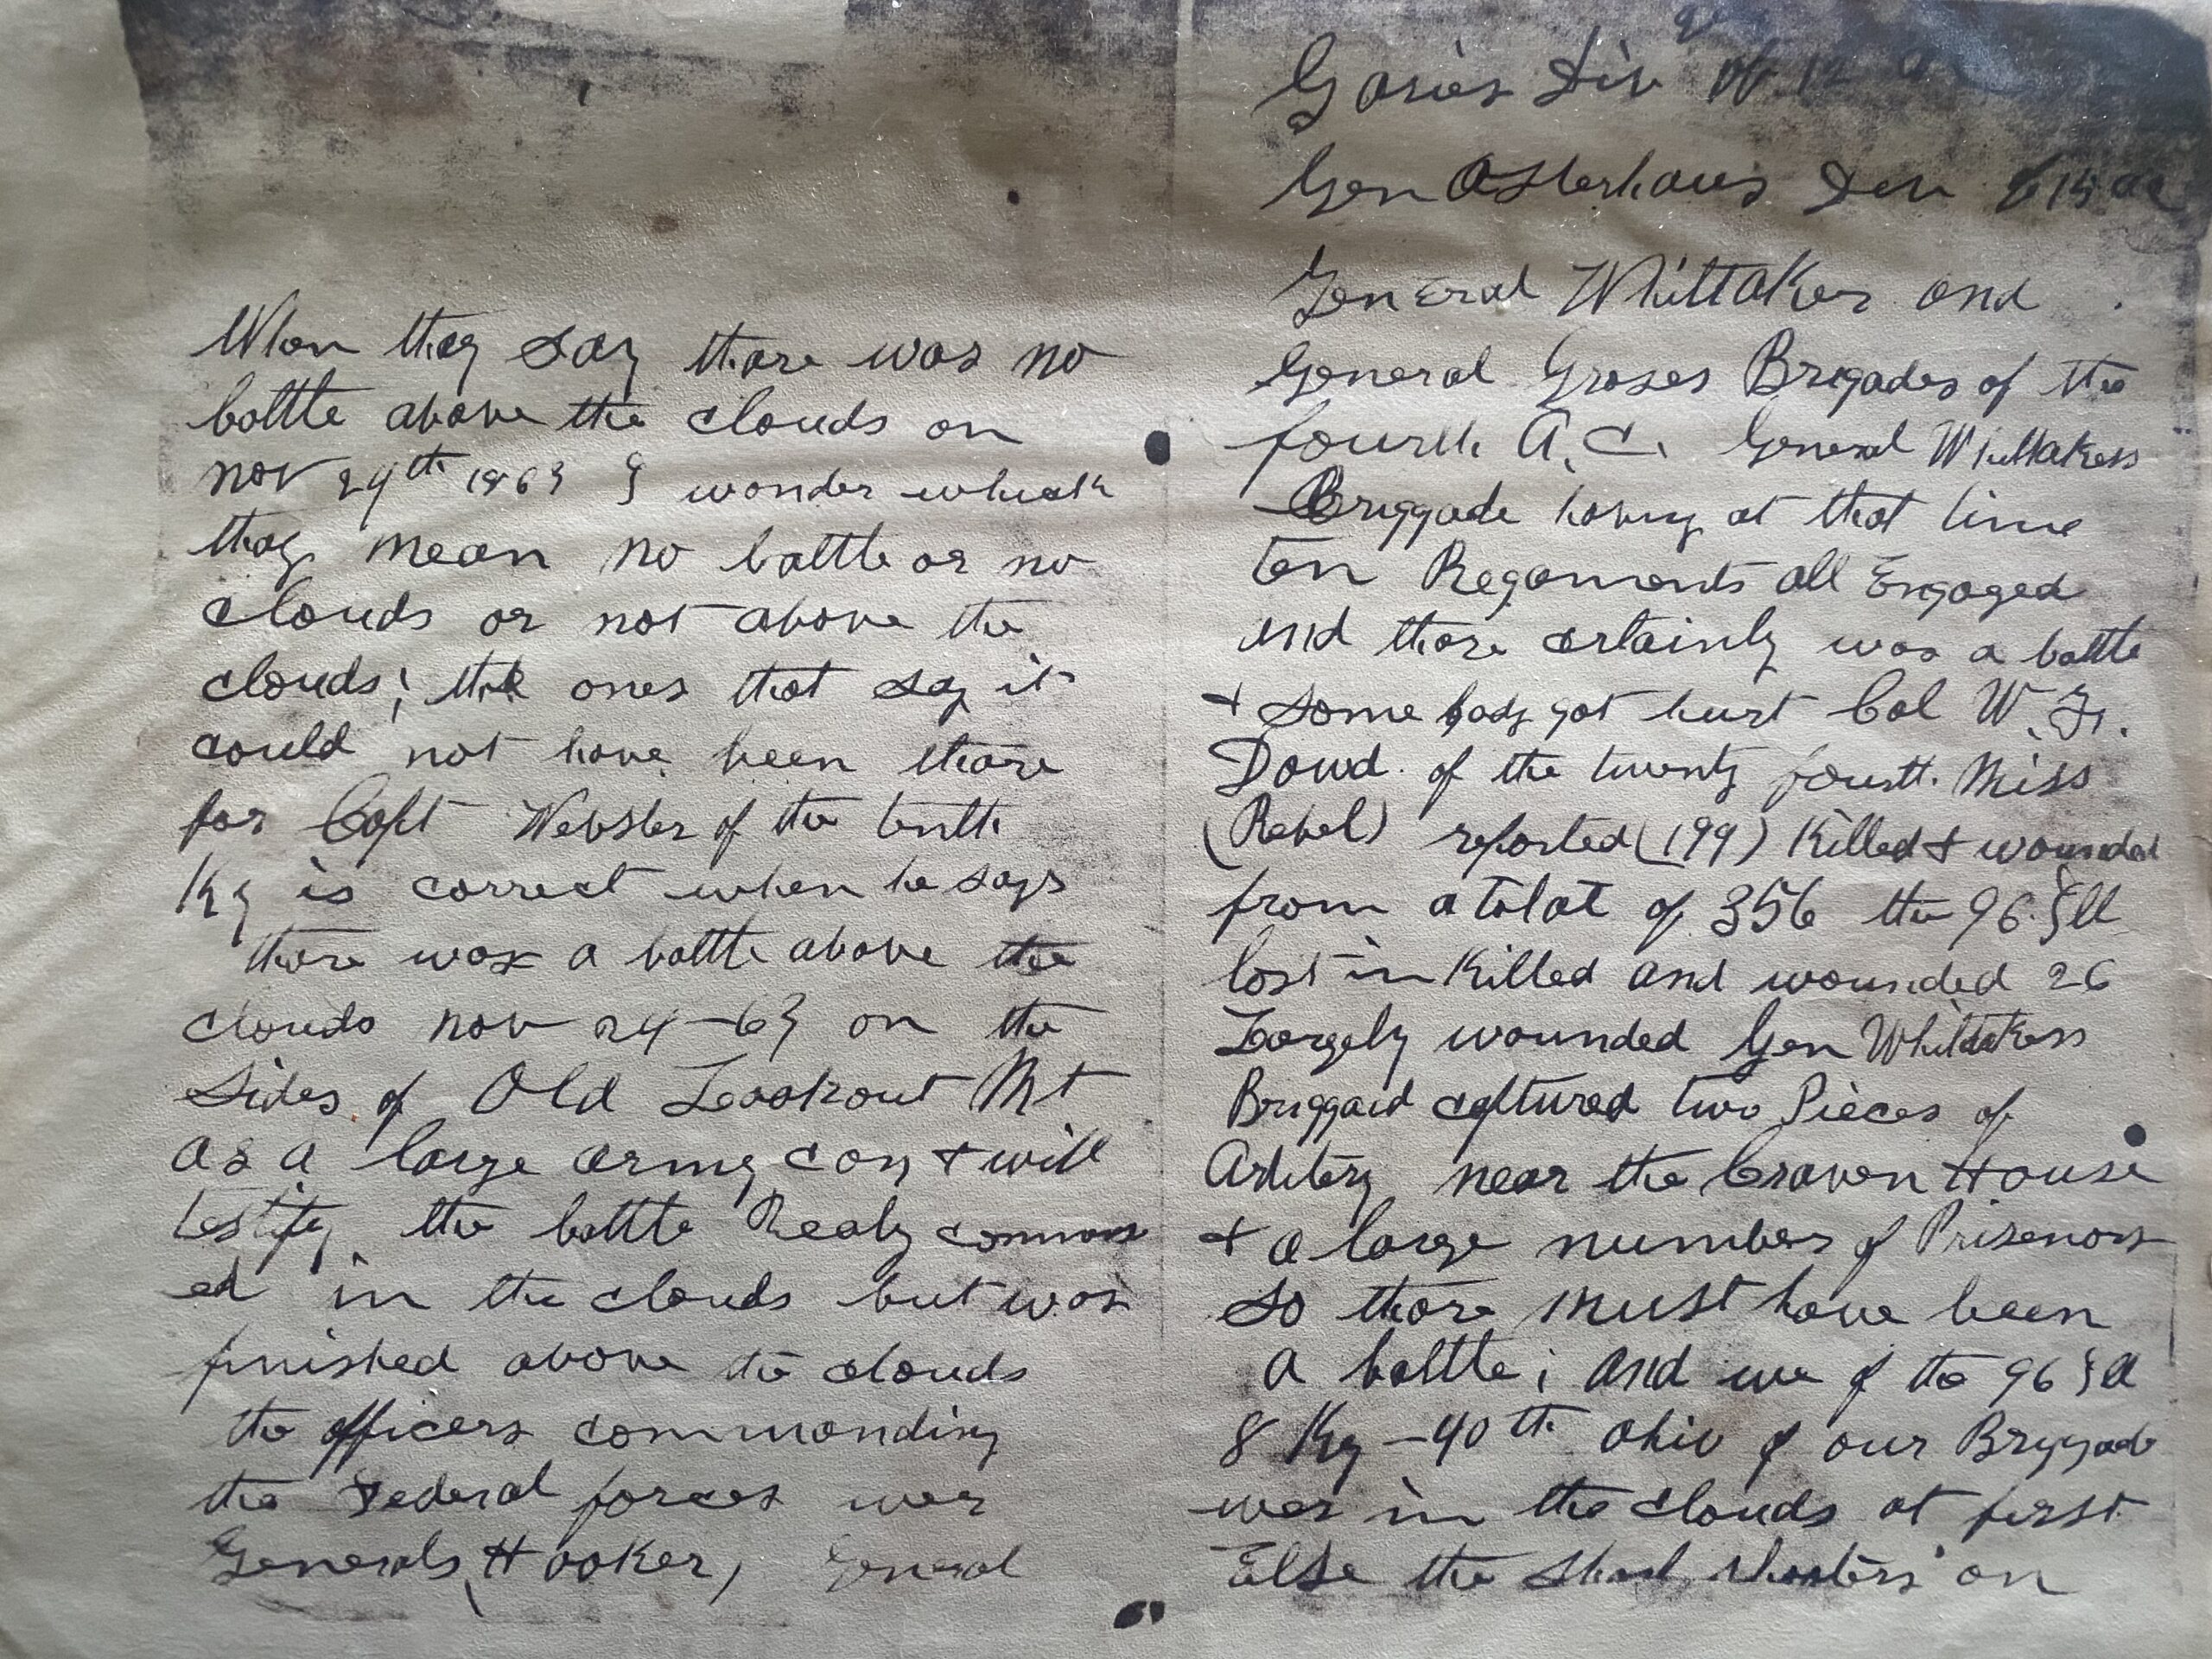 When they say thare was no
battle above the clouds on
nov 24th 1863 I wonder which
they mean no battle or no
clouds or not above the
clouds; the ones that say it
could not have been thare
for Capt Webster of the tenth
Ky is correct when he says
thare was a battle above the
clouds nov 24-63 on the
Sides of Old Lookout Mt
as a large army can & will
testify the battle Realy commenc
ed in the clouds but was
finished above the clouds
the officers commanding
the Federal forces wer
Generals, Hooker, General
Garies Div of 12
Gen Osterhaus Div of 15 ac
General Whittaker and
General Groses Brigades of the
fourth A.C. General Whittakers
Briggade having at that time
ten Regaments all Engaged
and thare certainly was a battle
& some body got hurt Col W.F.
Dowd of the twenty fourth Miss
(Rebel) reported (199) Killed & wounded
from a tolat of 356 the 96 Ill
lost in Killed and wounded 26
Largely wounded Gen Whittakers
Briggaid captured two Pieces of
Artilery near the Craven House
& a large number of Prisenors
so thare must have been
a battle; and we of the 96 Ill
8 Ky - 40th Ohio of our Briggade
wer in the clouds at first
Else the Sharp Shooters on